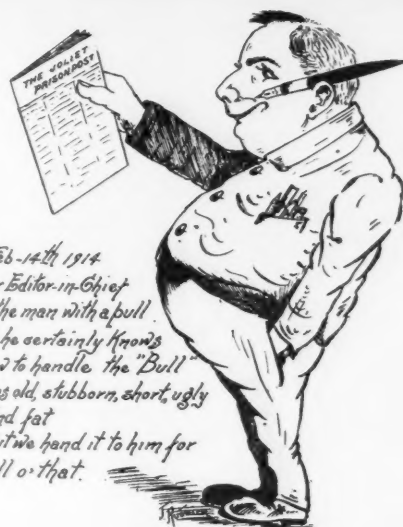 THE JOLIET
PRISON POST
Feb-14th 1914
Editor-in-Chief
the man with a pull
he certainly Knows
to handle the "Bull"
old, stubborn, short, ugly
fat
we hand it to him for
o' that.